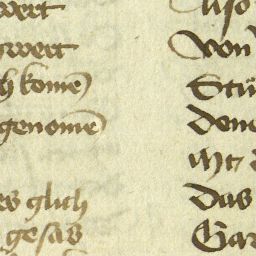 wert
gwert
h komē
genomē
es glich
gesas
Also
Von
Stü
Den
Mit
Das
Gar